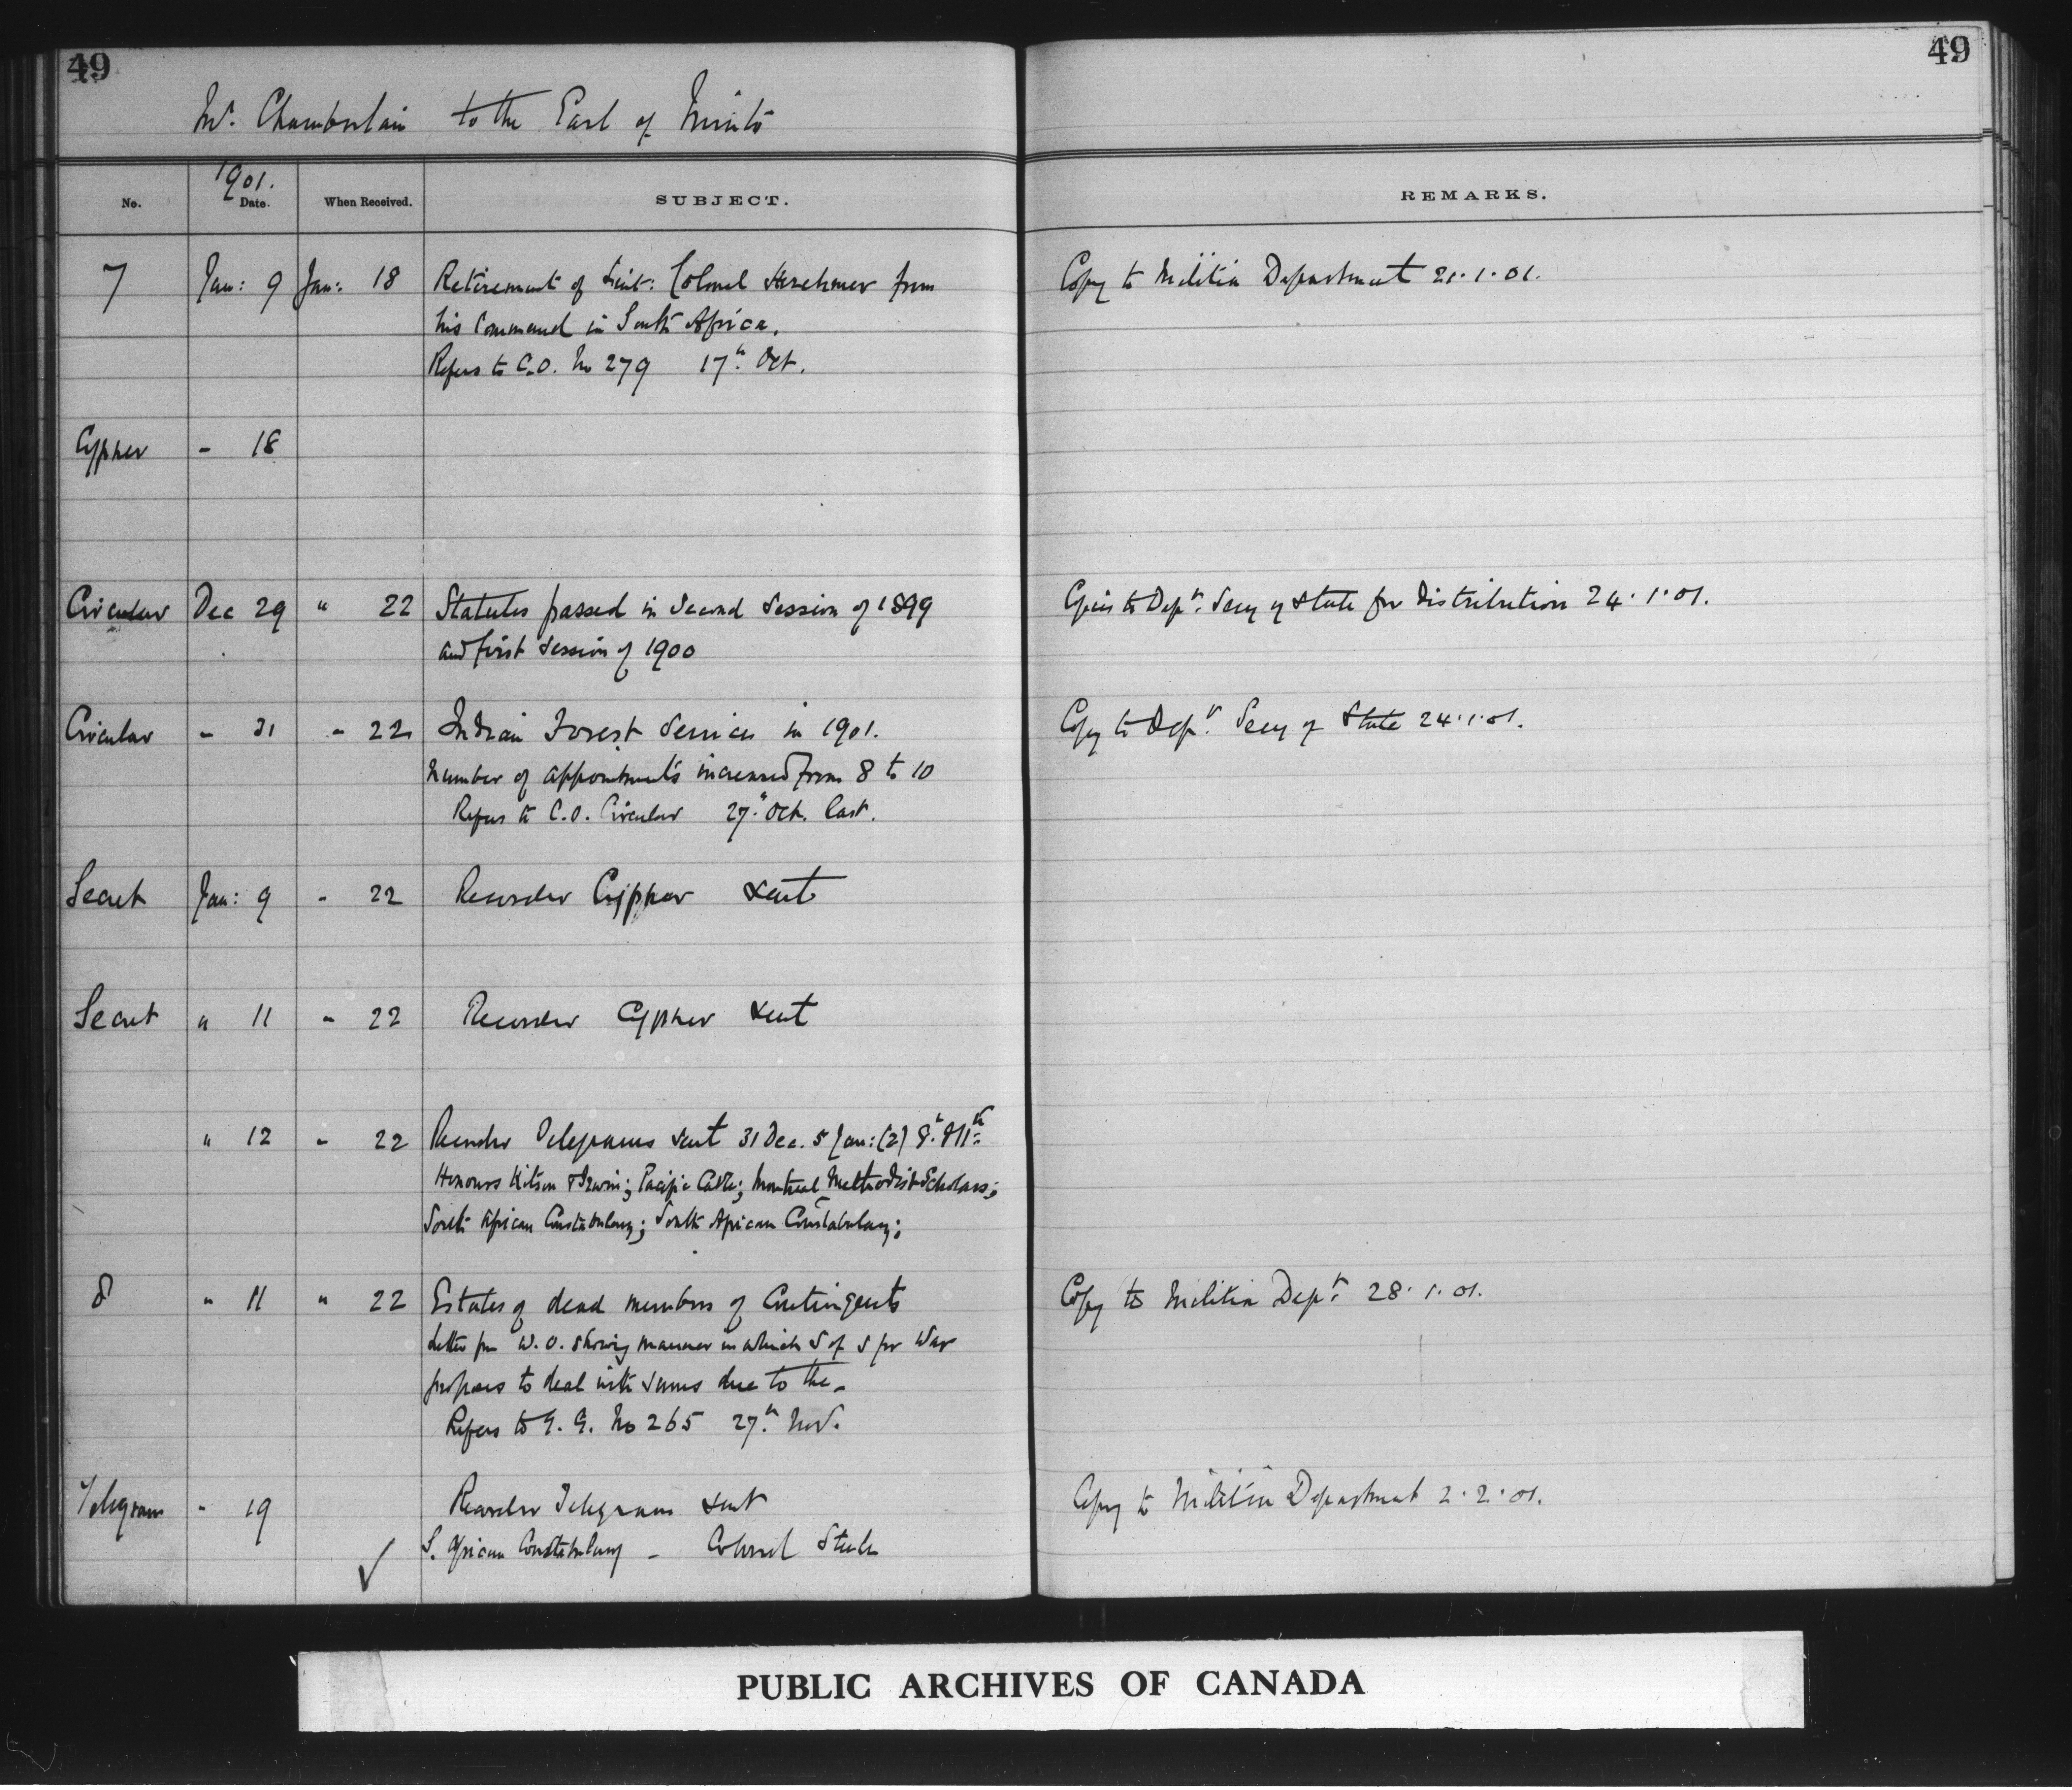 49
49
Mr. Chamberlain to the Earl of Minto
1901.
No. Date. When Received. SUBJECT. REMARKS.
7 Jan: 9 Jan: 18 Retirement of Lieut: Colonel Herchmer from Copy to Militia Department 21.1.01.
his Command in South Africa.
Refers to C.O. No 279 17th Oct.
Cypher - 18
Circular Dec 29 " 22 Statutes passed in Second Session of 1899 Copies to Dept. Secy of State for distribution 24.1.01.
and first Session of 1900
Circular - 31 - 22 Indian Forest Services in 1901. Copy to Dept. Secy of State 24.1.01.
Number of appointments increased from 8 to 10
Refers to C.O. Circular 27th Oct. last.
Secret Jan: 9 - 22 Records Cypher sent
Secret " 11 - 22 Records Cypher sent
" 12 - 22 Records Telegrams sent 31 Dec. 5 Jan: (2) 8th & 11th
Honours Kitson & Irwin; Pacific Cable; Montreal Methodist Scholars;
South African Constabulary; South African Constabulary;
8 " 11 " 22 Estates of dead members of Contingents Copy to Militia Dept. 28.1.01.
Letter fm W.O. showing manner in which S of S for War
proposes to deal with sums due to the -
Refers to G.G. No 265 27th Nov.
Telegram - 19 Records Telegram sent Copy to Militia Department 2.2.01.
S. African Constabulary - Colonel Steele
PUBLIC ARCHIVES OF CANADA